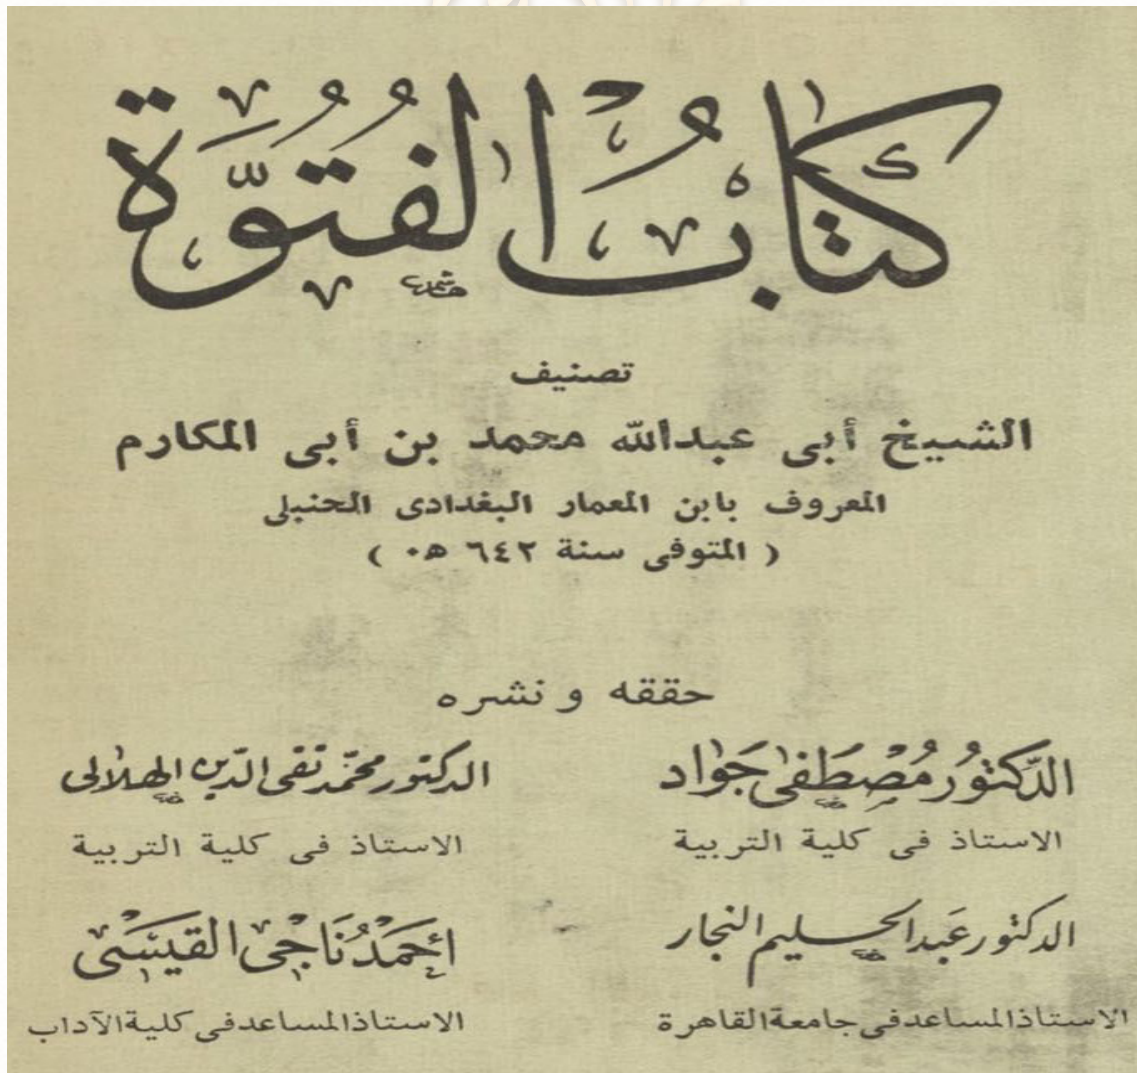 كتاب الفتوة
هاشم
تصنيف
الشيخ أبى عبدالله محمد بن أبى المكارم
المعروف بابن المعمار البغدادى الحنبلى
( المتوفى سنة ٦٤٢ هـ٠ )
حققه و نشره
الدكتور مصطفى جواد
الاستاذ فى كلية التربية
الدكتور محمد تقى الدين الهلالى
الاستاذ فى كلية التربية
الدكتور عبد الحليم النجار
الاستاذ المساعد فى جامعة القاهرة
احمد ناجى القيسى
الاستاذ المساعد فى كلية الآداب